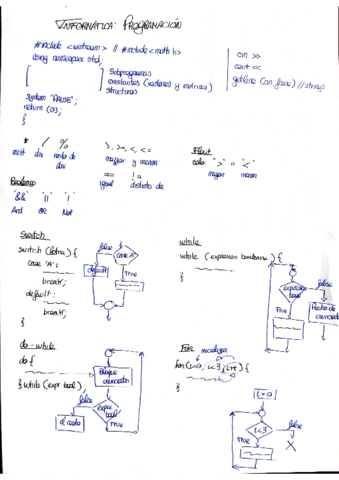 INFORMÁTICA: PROGRAMACIÓN
#include <iostream> // #include <math.h>
using namespace std;
cin >>
cout <<
getline (cin, frase) // strings
Subprogramas
constantes (vectores y matrices)
structuras
system "PAUSE";
return (0);
}
* / %
mult div resto de div
>, >=, <, <=
mayor y menor
== !=
igual distinto de
Float
solo ">" o "<"
mayor menor
Booleano
"&&" "||" "!"
And OR Not
Switch
switch (letra) {
case 'A':
break;
default:
break;
}
false
case 'A'
default
TRUE
while
while (expresion booleana) {
}
false
expresion bool
TRUE
Resto de enunciados
do - while
do {
} while (expr bool);
Bloque enunciados
false
expr bool
TRUE
el resto
For
for (i=0; i<3; i++) {
}
i=0
i<3
false
TRUE
X